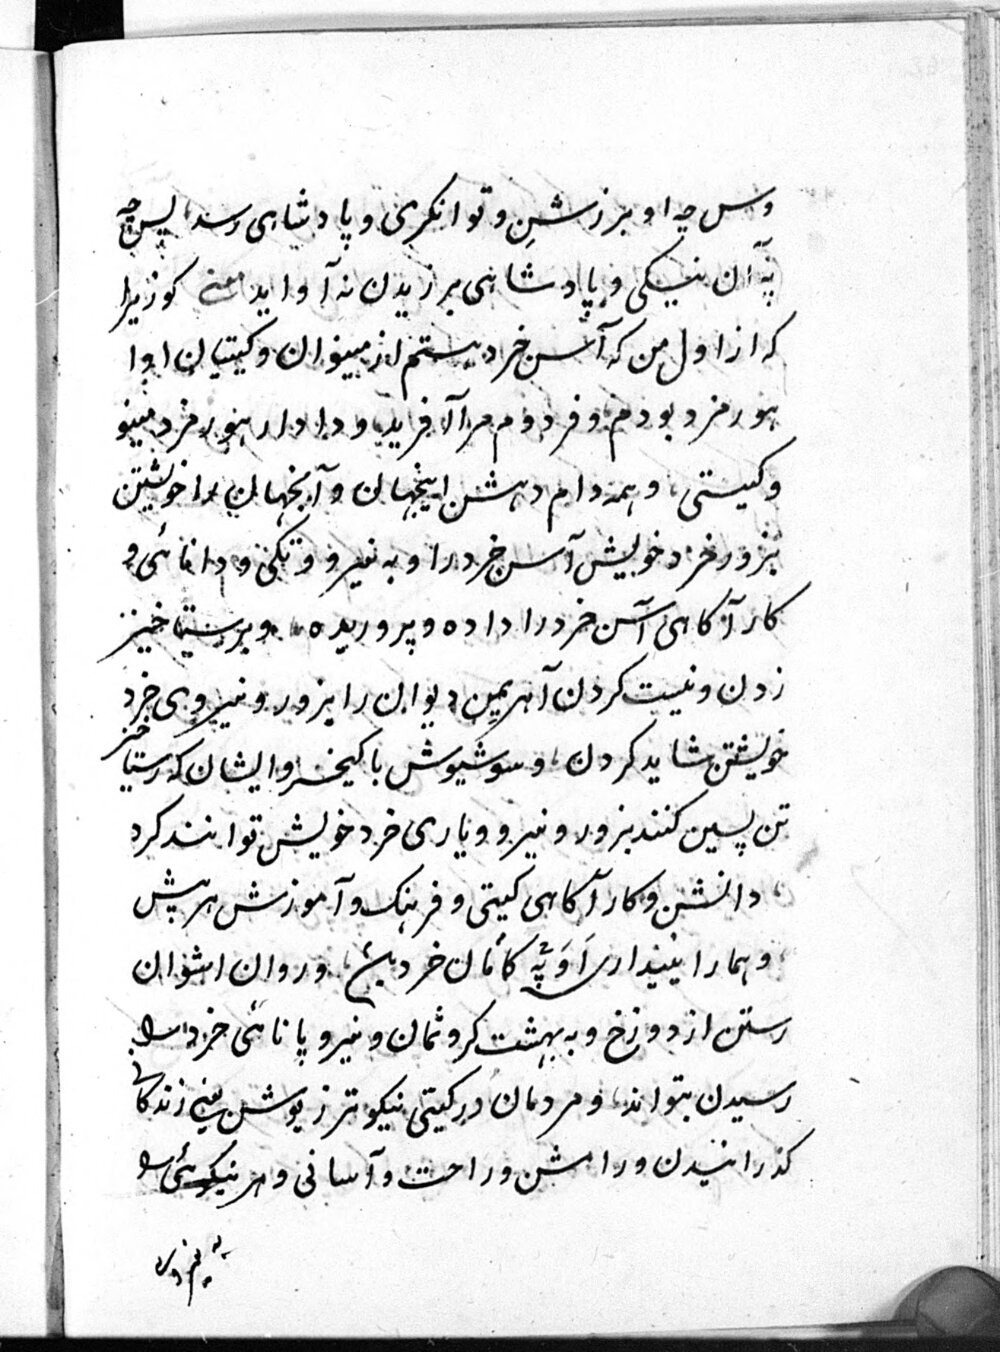 وس چه او برزشن و توانکری و پادشاهی رسد، پس چه
په آن نیکی و پادشاهی برزیدن نه آواید کو زیرا
که از اول من که آسن خرد هستم از مینوان و کیتیان اوا
هورمزد بودم و فردوم مرا آفرید و دادار هورمزد مینو
و کیتی، و همه دام دهشن اینجهان و آنجهان را خویشتن
بزور خرد خویش آسن خرد را و به نیرو و تکی و دانائی و
کار آکاهی آسن خرد را داده و پروریده، و برستاخیز
زدن و نیست کردن آهریمن دیوان را بزور و نیروی خرد
خویشتن شاید کردن، و سوشیوش با کیخسرو ایشان که رستاخیز
تن پسین کنند بزور و نیرو و یاری خرد خویش توانند کرد
، دانشن و کار آکاهی کیتی و فرهنک و آموزش هر پیش
، و همار اینیداری او په خرد و روان اشوان
رستن از دوزخ و به بهشت کروثمان و نیرو پانائی خرد را
رسیدن بتواند، و مردمان در کیتی نیکوتر زیوشن یعنی زندکانی
کذرانیدن و رامشن و راحت و آسانی و هر نیکوئی را
په نیروی